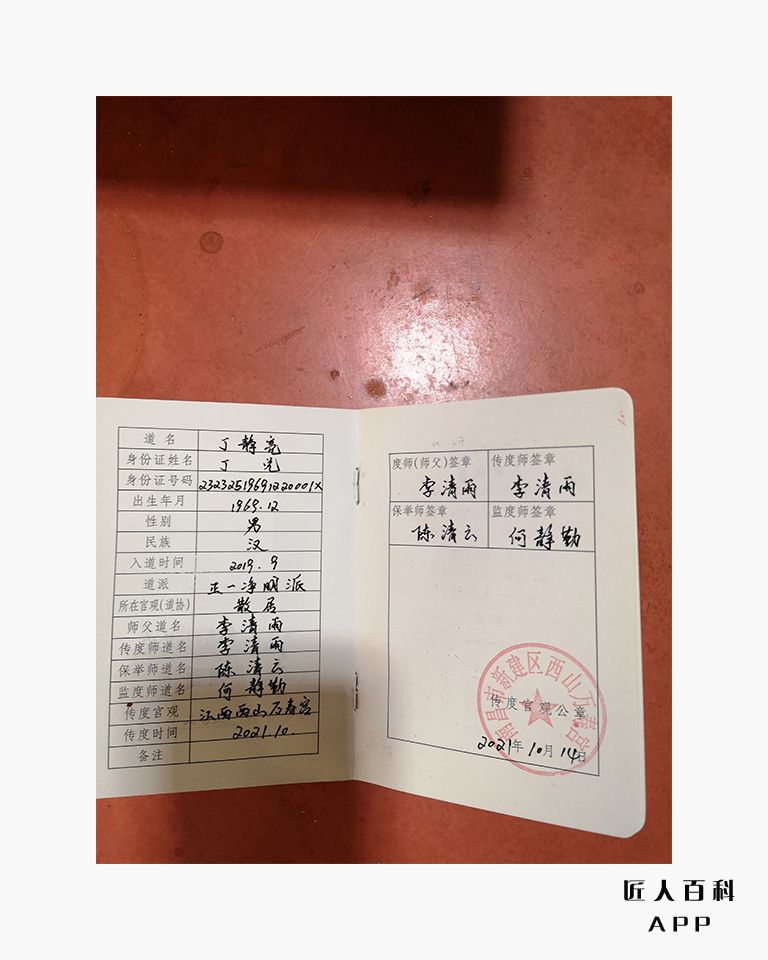 道名 丁静亮
身份证姓名 丁亮
身份证号码 23232519691220001X
出生年月 1969.12
性别 男
民族 汉
入道时间 2019.9
道派 正一净明派
所在宫观(道协) 散居
师父道名 李清雨
传度师道名 李清雨
保举师道名 陈清云
监度师道名 何静勤
传度宫观 江西西山万寿宫
传度时间 2021.10.
备注
度师(师父)签章 传度师签章
李清雨 李清雨
保举师签章 监度师签章
陈清云 何静勤
南昌市新建区西山万寿宫
传度宫观公章
2021年10月14日
匠人百科
APP